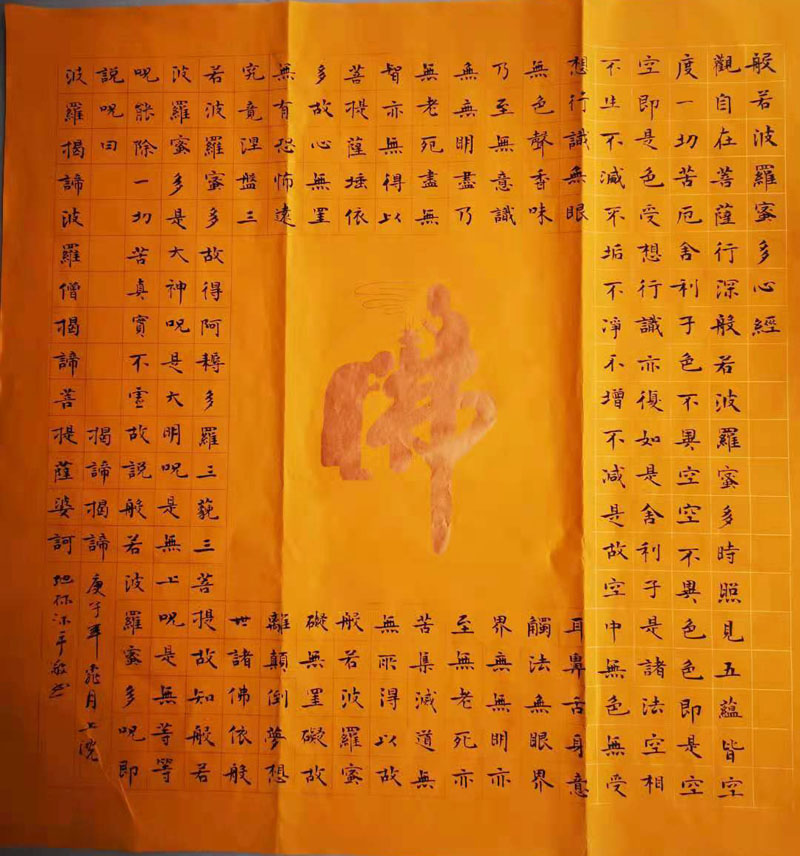 般若波羅蜜多心經
觀自在菩薩行深般若波羅蜜多時照見五蘊皆空
度一切苦厄舍利子色不異空空不異色色即是空
空即是色受想行識亦復如是舍利子是諸法空相
不生不滅不垢不淨不增不減是故空中無色無受
想行識無眼耳鼻舌身意
無色聲香味觸法無眼界
乃至無意識界無無明亦
無無明盡乃至無老死亦
無老死盡無苦集滅道無
智亦無得以無所得以故
菩提薩埵依般若波羅蜜
多故心無罣礙無罣礙故
無有恐怖遠離顛倒夢想
究竟涅盤三世諸佛依般
若波羅蜜多故得阿耨多羅三藐三菩提故知般若
波羅蜜多是大神呪是大明呪是無上呪是無等等
呪能除一切苦真實不虛故說般若波羅蜜多呪即
說呪曰揭諦揭諦
波羅揭諦波羅僧揭諦菩提薩婆訶
庚子年月上浣
佛